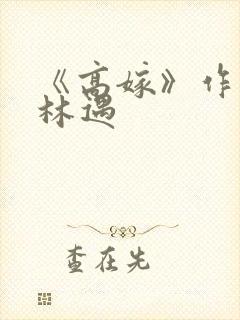 《高嫁》作
林遇
查在先